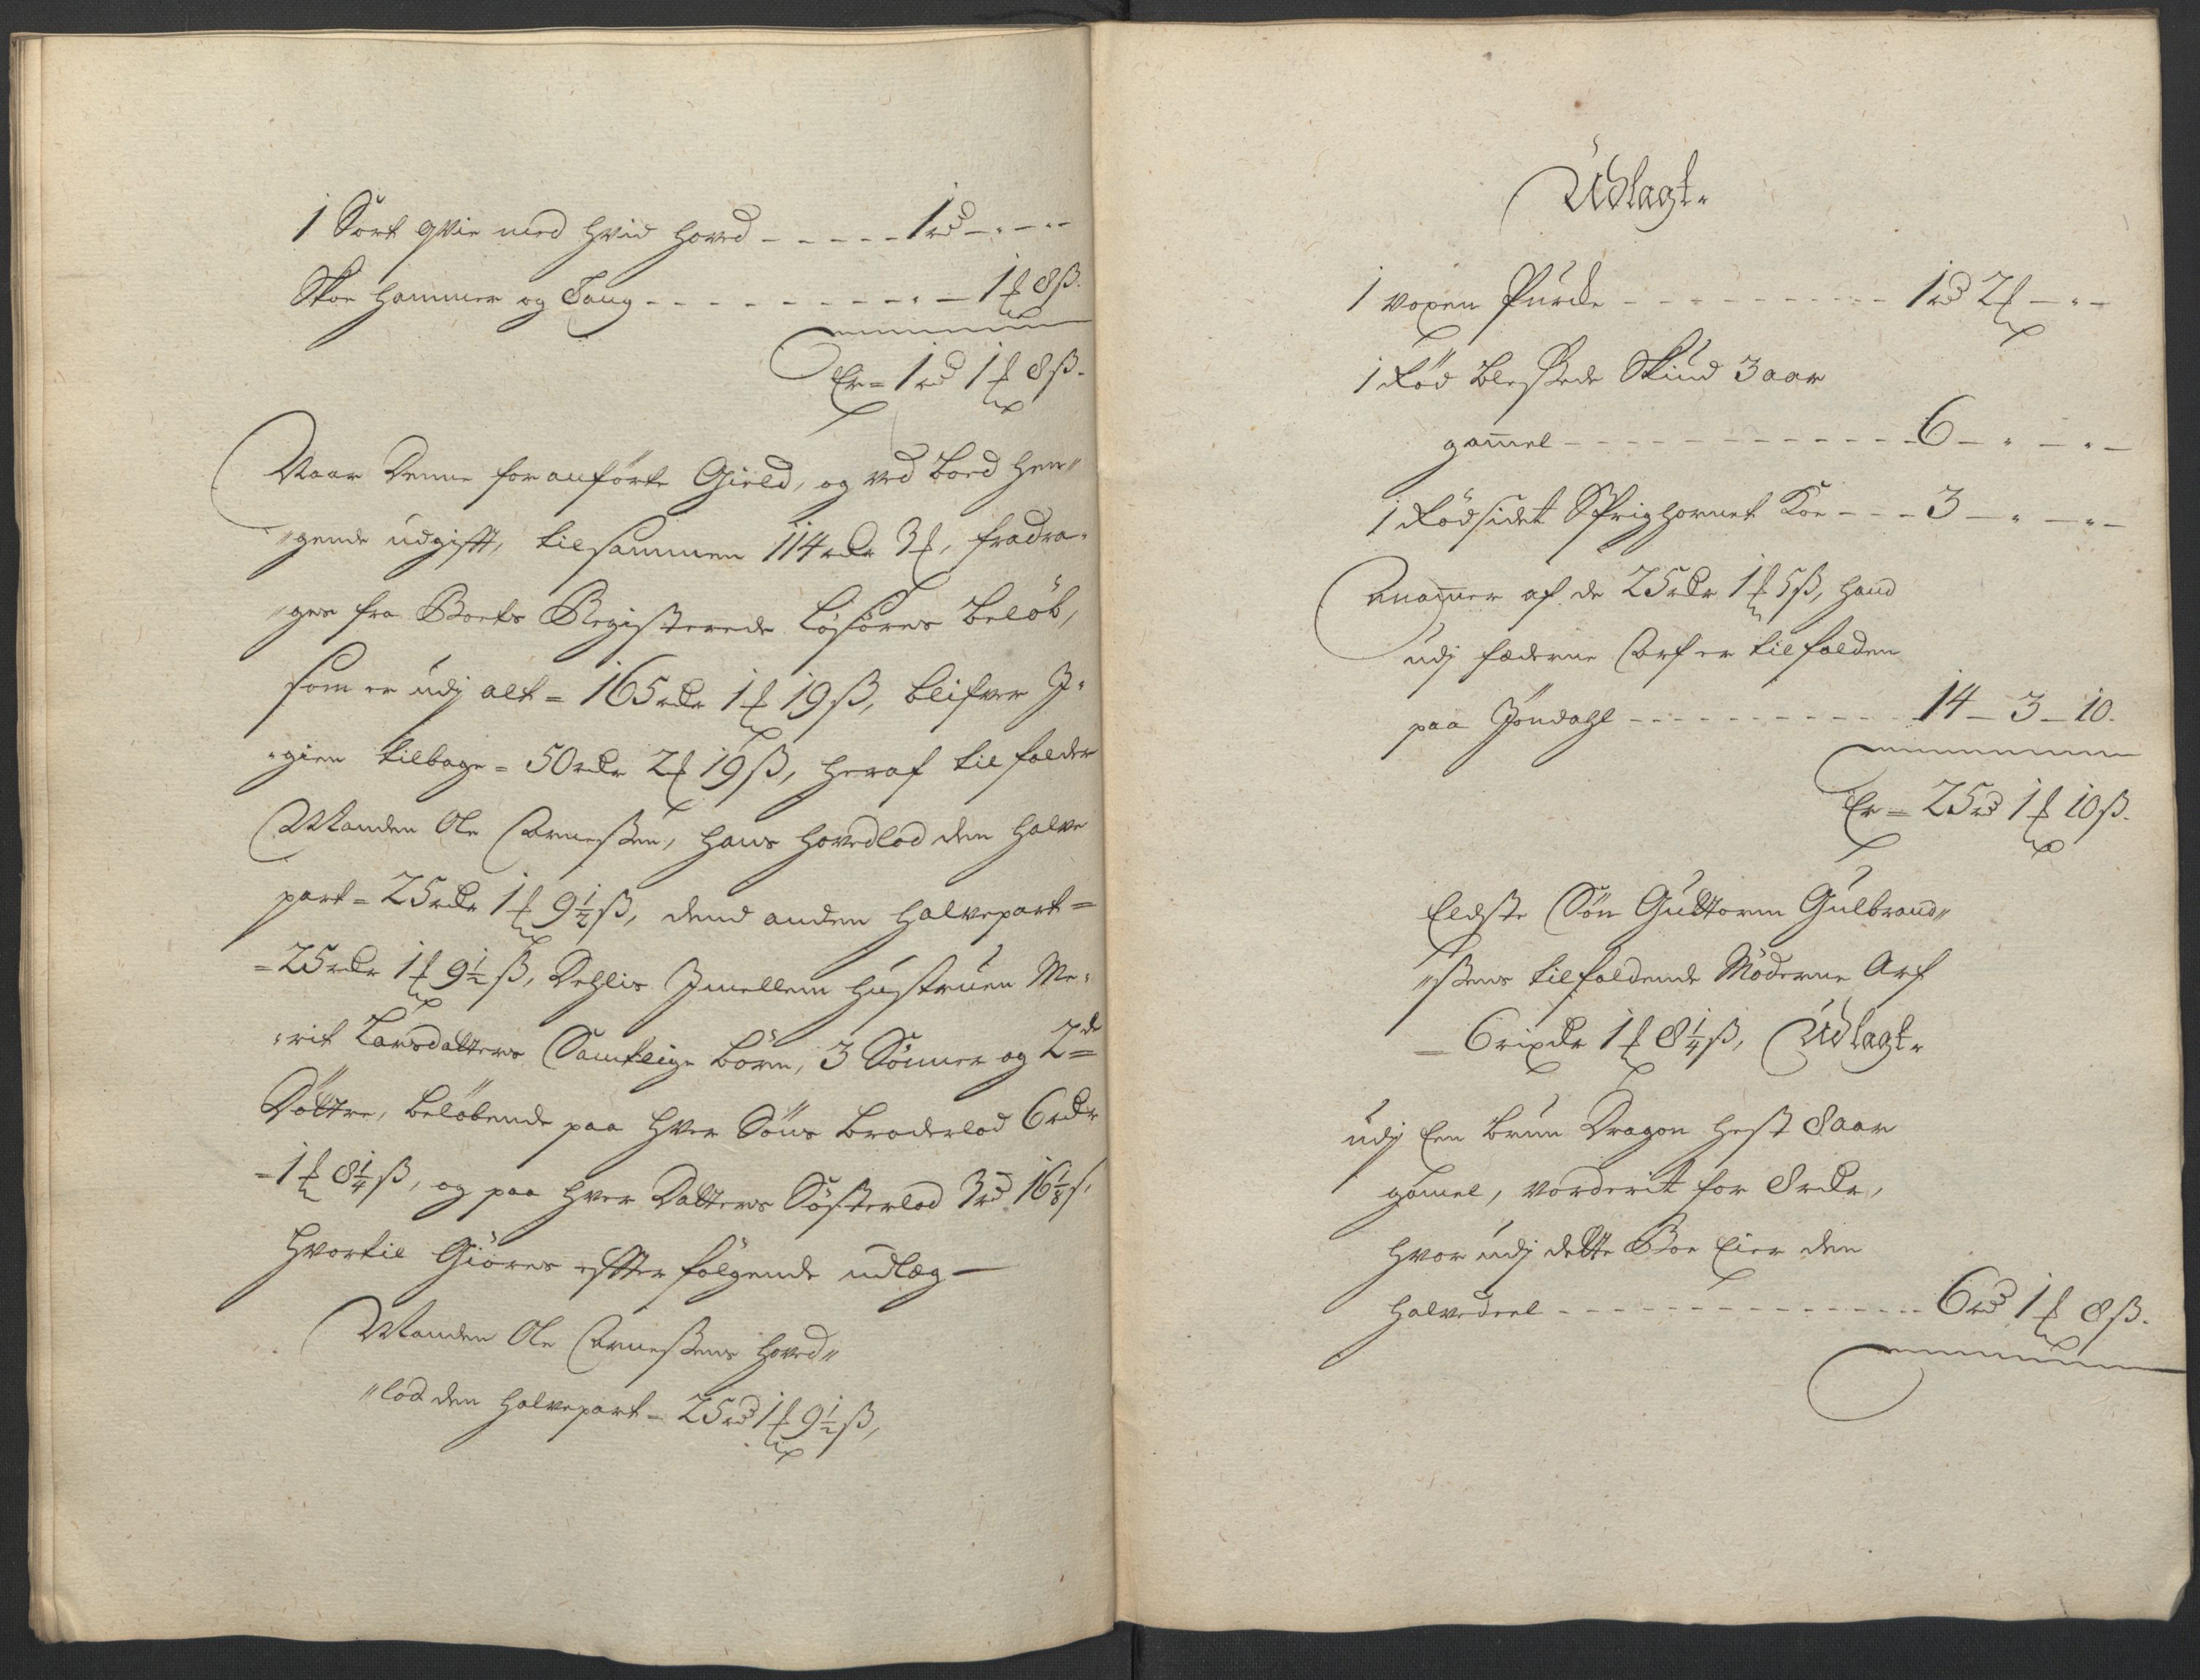 1 Sort qvie med hvid hoved - - - - - 1 rd - " - " -
Skoe hammer og Tang - - - - - - - - - " - 1 f 8 ß.
Er = 1 rd 1 f 8 ß.
Naar Denne for anførte Gield, og ved boed hen"
"gende udgifft, tilsammen 114 rdr 3 f, fradra"
"ges fra Boets Registerede Løsøres beløb,
som er udj alt = 165 rdr 1 f 19 ß, blifver J"
"gien tilbage = 50 rdr 2 f 19 ß, heraf tilfalder
Manden Ole Arneßen, hans hovedlod den halve
part = 25 rdr 1 f 9½ ß, dend anden halvepart =
= 25 rdr 1 f 9½ ß, Dehlis Jmellem hustruen Me"
"rit Larsdatters Samtlige børn, 3 Sønner og 2de =
Døttre, beløbende paa hver Søns broderlod 6 rdr
= 1 f 8¼ ß, og paa hver Datters Søsterlod 3 rd 16⅛ s,
hvortil Giøres effterfølgende udlæg —
Manden Ole Arneßens hoved"
"lod den halvepart = 25 rd 1 f 9½ ß,
Udlagt.
1 voxen Purcke - - - - - - - - - - 1 rd 2 f - " -
1 Rød bleßede Stiud 3 aar
gammel - - - - - - - - - - - - 6 - " - " -
1 Rødsidet Sprighornet Koe - - - 3 - " - " -
Anammer af de 25 rdr 1 f 5 ß, hand
udj fæderne Arf er tilfalden
paa Jøndahl - - - - - - - - - - 14 - 3 - 10.
Er = 25 rd 1 f 10 ß.
Eldste Søn Guttorm Gulbrand"
"ßens tilfaldende Møderne Arf
= 6 rixdr 1 f 8¼ ß, Udlagt.
udj Een bruun Dragon hest 8 aar
gamel, vorderit for 8 rdr,
hvor udj dette Boe Eier den
halvedeel - - - - - - - - - - - - - 6 rd 1 f 8 ß.